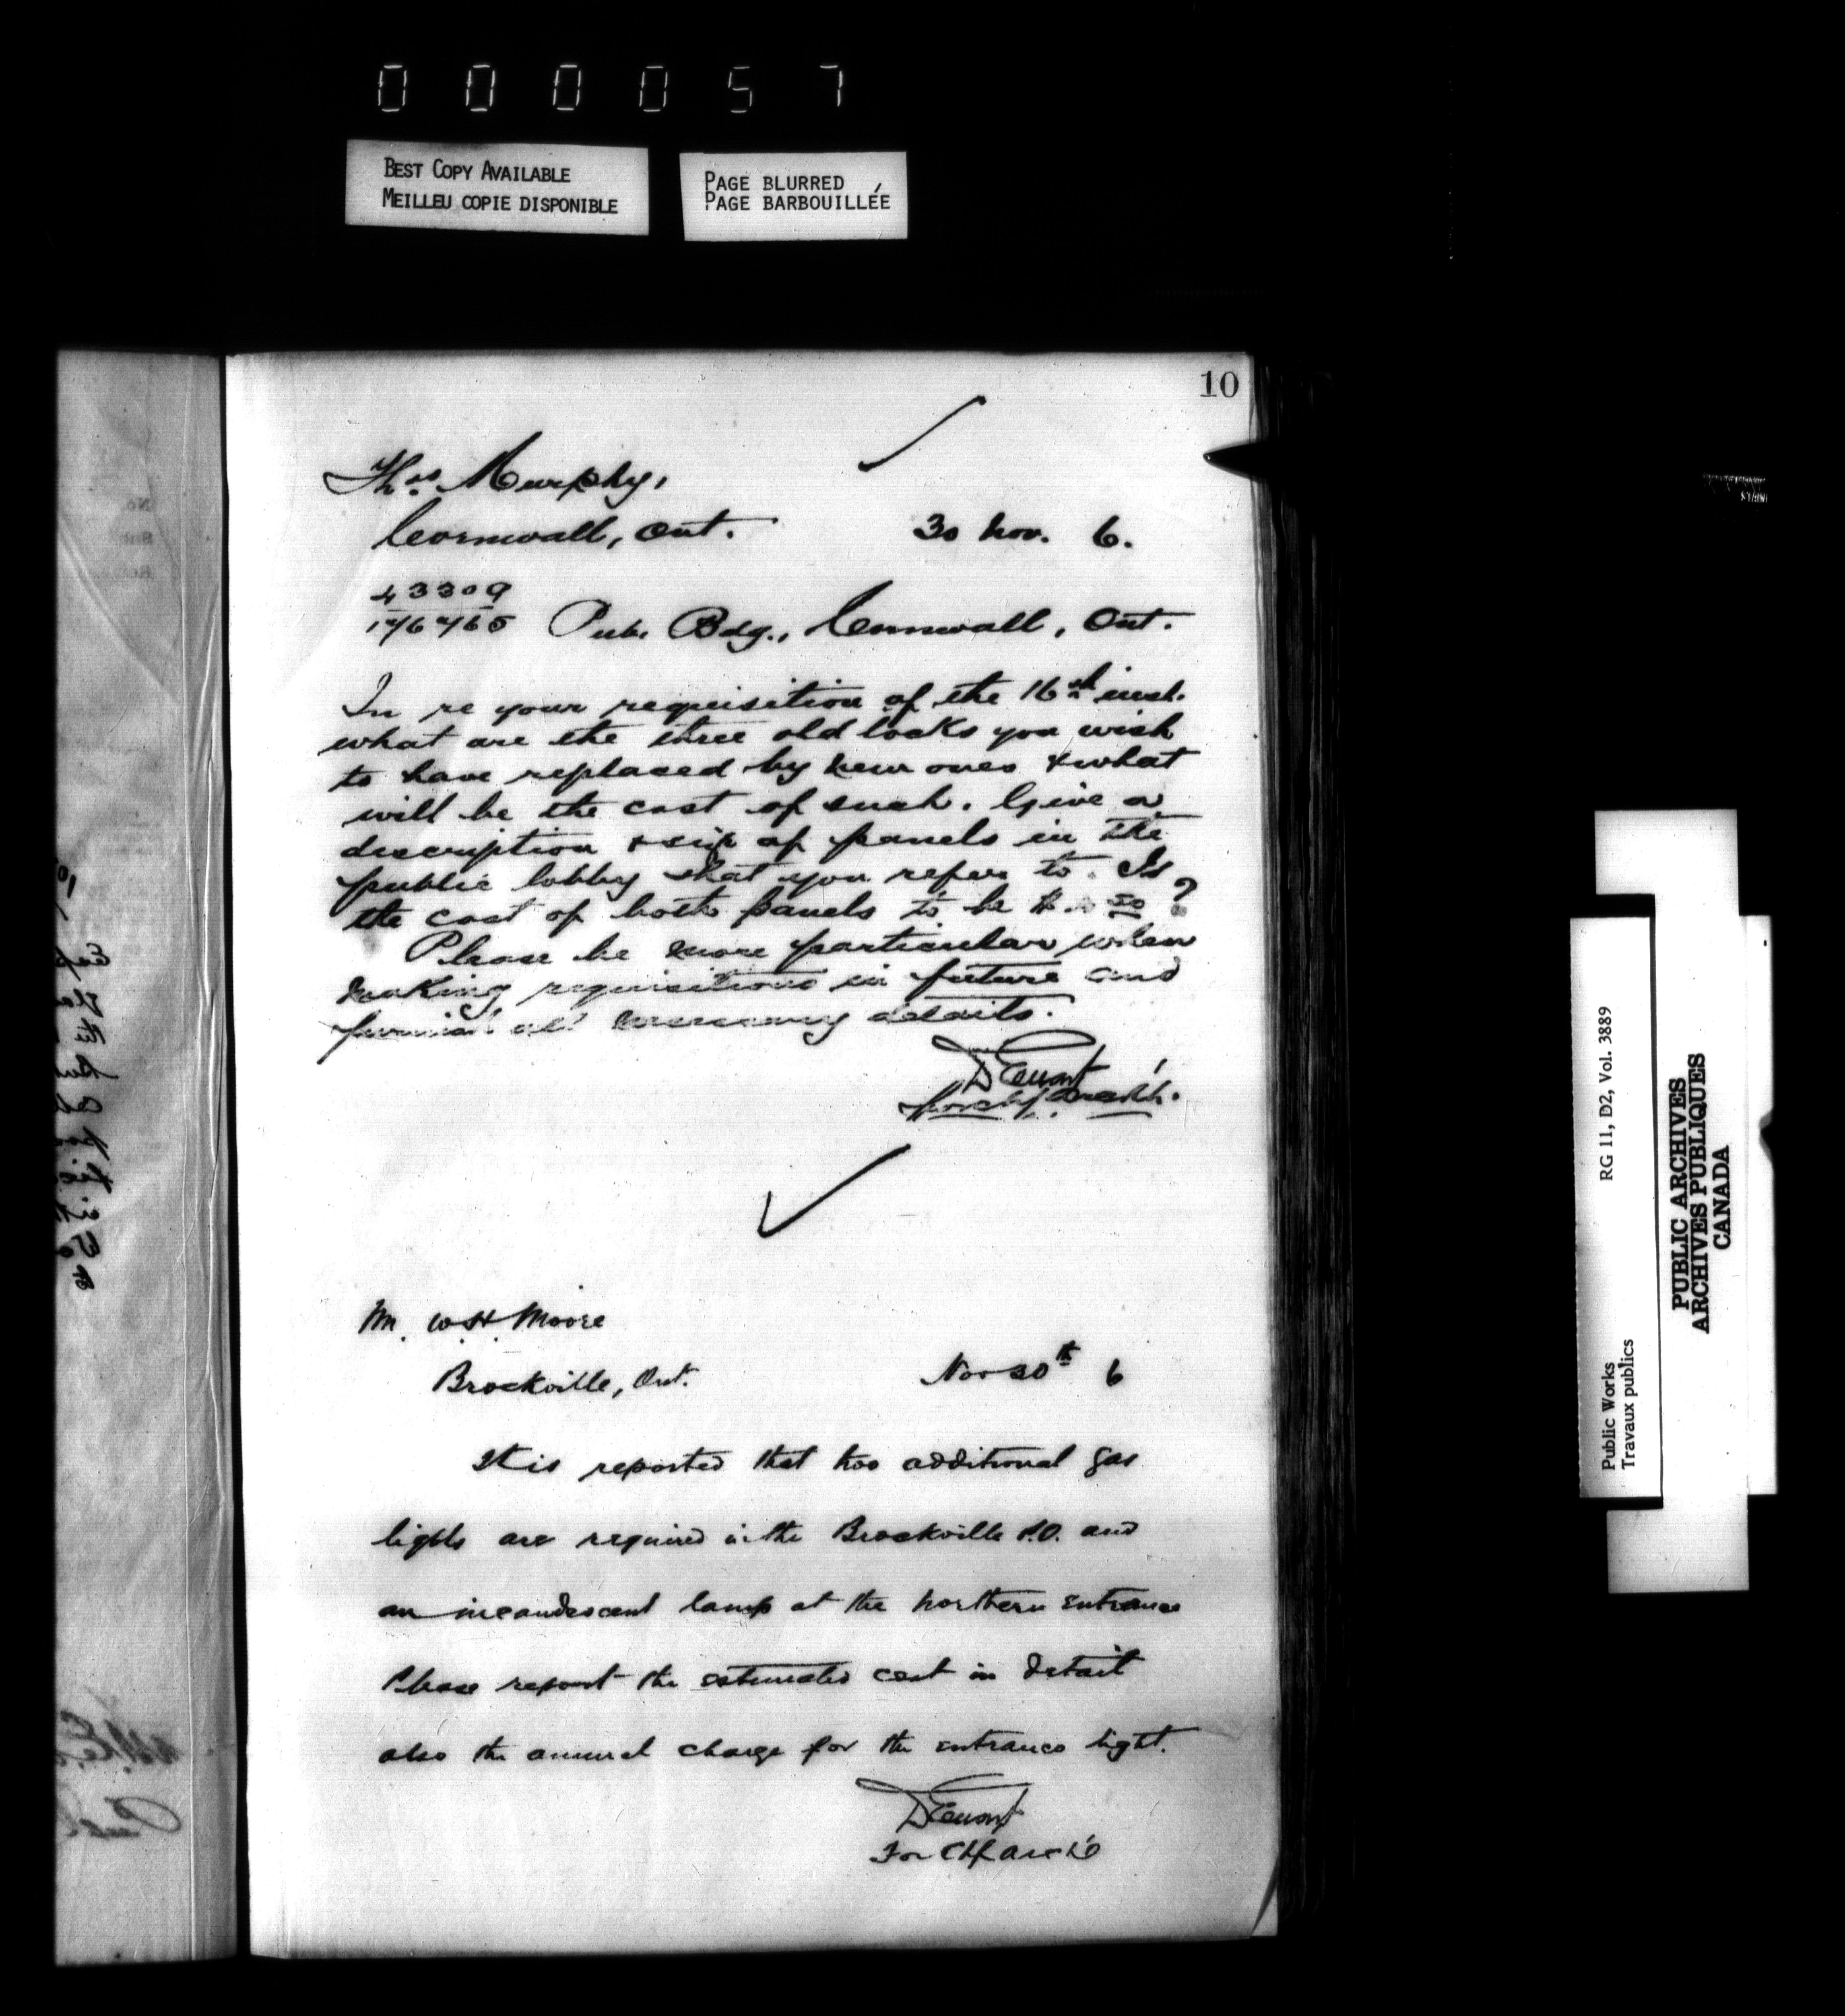 000057
BEST COPY AVAILABLE
MEILLEU COPIE DISPONIBLE
PAGE BLURRED
PAGE BARBOUILLÉE
10
Thos. Murphy,
Cornwall, Ont. 30 Nov. 6.
43309
Pub. Bdg., Cornwall, Ont.
In re your requisition of the 16th inst.
what are the three old locks you wish
to have replaced by new ones & what
will be the cost of such. Give a
description & size of panels in the
public lobby that you refer to. Is
the cost of both panels to be $ 50?
Please be more particular when
making requisitions in future and
furnish all necessary details.
D Ewart
for chf. Archt.
Mr. W.H. Moore
Brockville, Ont. Nov 30th 6
It is reported that two additional gas
lights are required in the Brockville P.O. and
an incandescent lamp at the northern entrance
Please report the estimated cost in detail
also the annual charge for the entrance light.
D Ewart
For Chf Archt
Public Works
Travaux publics
RG 11, D2, Vol. 3889
PUBLIC ARCHIVES
ARCHIVES PUBLIQUES
CANADA